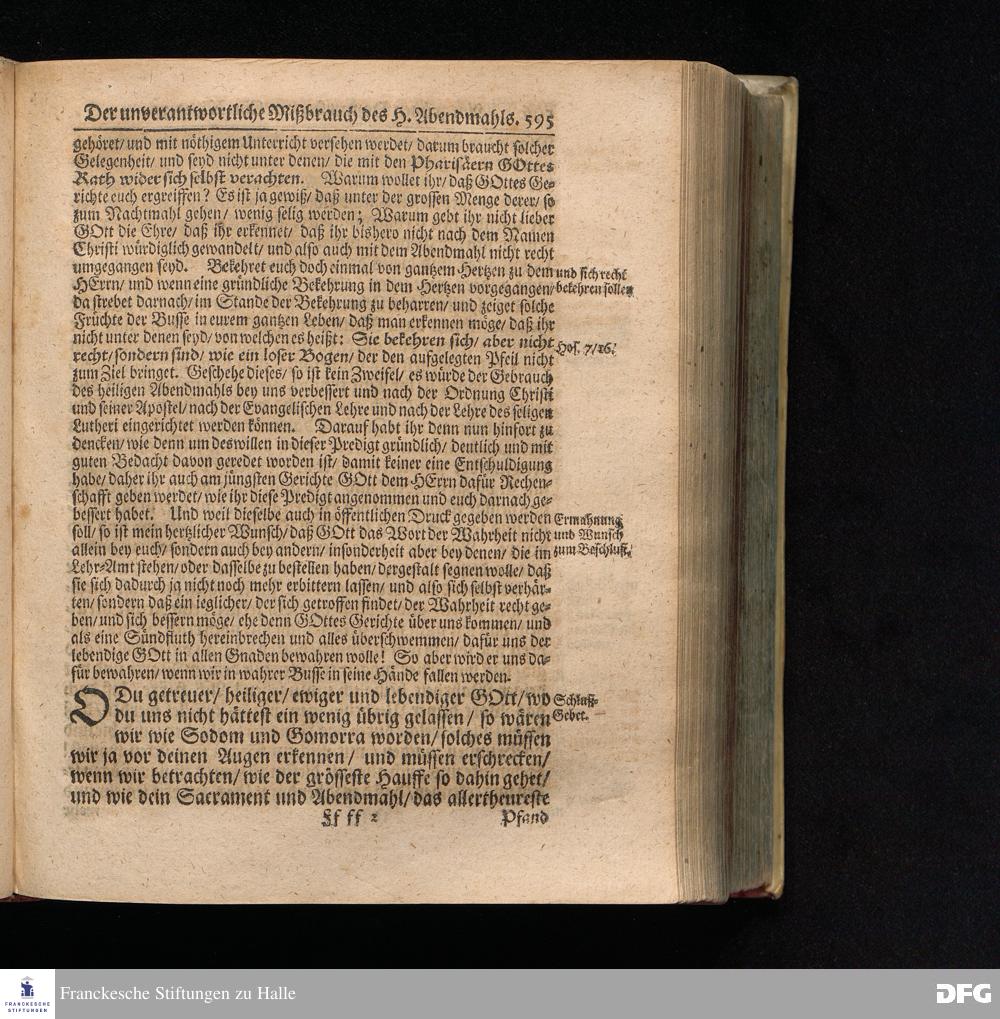 Der unverantwortliche Mißbrauch des H. Abendmahls. 595
gehöret/ und mit nöthigem Unterricht versehen werdet/ darum braucht solcher
Gelegenheit/ und seyd nicht unter denen/ die mit den Pharisäern GOttes
Rath wider sich selbst verachten. Warum wollet ihr/ daß GOttes Ge-
richte euch ergreiffen? Es ist ja gewiß/ daß unter der grossen Menge derer/ so
zum Nachtmahl gehen/ wenig selig werden; Warum gebt ihr nicht lieber
GOtt die Ehre/ daß ihr erkennet/ daß ihr bishero nicht nach dem Namen
Christi würdiglich gewandelt/ und also auch mit dem Abendmahl nicht recht
umgegangen seyd. Bekehret euch doch einmal von gantzem Hertzen zu dem
HErrn/ und wenn eine gründliche Bekehrung in dem Hertzen vorgegangen/
da strebet darnach/ im Stande der Bekehrung zu beharren/ und zeiget solche
Früchte der Busse in eurem gantzen Leben/ daß man erkennen möge/ daß ihr
nicht unter denen seyd/ von welchen es heißt: Sie bekehren sich/ aber nicht
recht/ sondern sind/ wie ein loser Bogen/ der den aufgelegten Pfeil nicht
zum Ziel bringet. Geschehe dieses/ so ist kein Zweifel/ es würde der Gebrauch
des heiligen Abendmahls bey uns verbessert und nach der Ordnung Christi
und seiner Apostel/ nach der Evangelischen Lehre und nach der Lehre des seligen
Lutheri eingerichtet werden können. Darauf habt ihr denn nun hinfort zu
dencken/ wie denn um deswillen in dieser Predigt gründlich/ deutlich und mit
guten Bedacht davon geredet worden ist/ damit keiner eine Entschuldigung
habe/ daher ihr auch am jüngsten Gerichte GOtt dem HErrn dafür Rechen-
schafft geben werdet/ wie ihr diese Predigt angenommen und euch darnach ge-
bessert habet. Und weil dieselbe auch in öffentlichen Druck gegeben werden
soll/ so ist mein hertzlicher Wunsch/ daß GOtt das Wort der Wahrheit nicht
allein bey euch/ sondern auch bey andern/ insonderheit aber bey denen/ die im
Lehr-Amt stehen/ oder dasselbe zu bestellen haben/ dergestalt segnen wolle/ daß
sie sich dadurch ja nicht noch mehr erbittern lassen/ und also sich selbst verhär-
ten/ sondern daß ein ieglicher/ der sich getroffen findet/ der Wahrheit recht ge-
ben/ und sich bessern möge/ ehe denn GOttes Gerichte über uns kommen/ und
als eine Sündfluth hereinbrechen und alles überschwemmen/ dafür uns der
lebendige GOtt in allen Gnaden bewahren wolle! So aber wird er uns da-
für bewahren/ wenn wir in wahrer Busse in seine Hände fallen werden.
O Du getreuer/ heiliger/ ewiger und lebendiger GOtt/ wo
du uns nicht hättest ein wenig übrig gelassen/ so wären
wir wie Sodom und Gomorra worden/ solches müssen
wir ja vor deinen Augen erkennen/ und müssen erschrecken/
wenn wir betrachten/ wie der grösseste Hauffe so dahin gehet/
und wie dein Sacrament und Abendmahl/ das allertheureste
Ff ff 2
Pfand
und sich recht
bekehren sollen
Hos. 7/16.
Ermahnung
und Wunsch
zum Beschluß.
Schluß-
Gebet.
FRANCKESCHE
STIFTUNGEN
Franckesche Stiftungen zu Halle
DFG